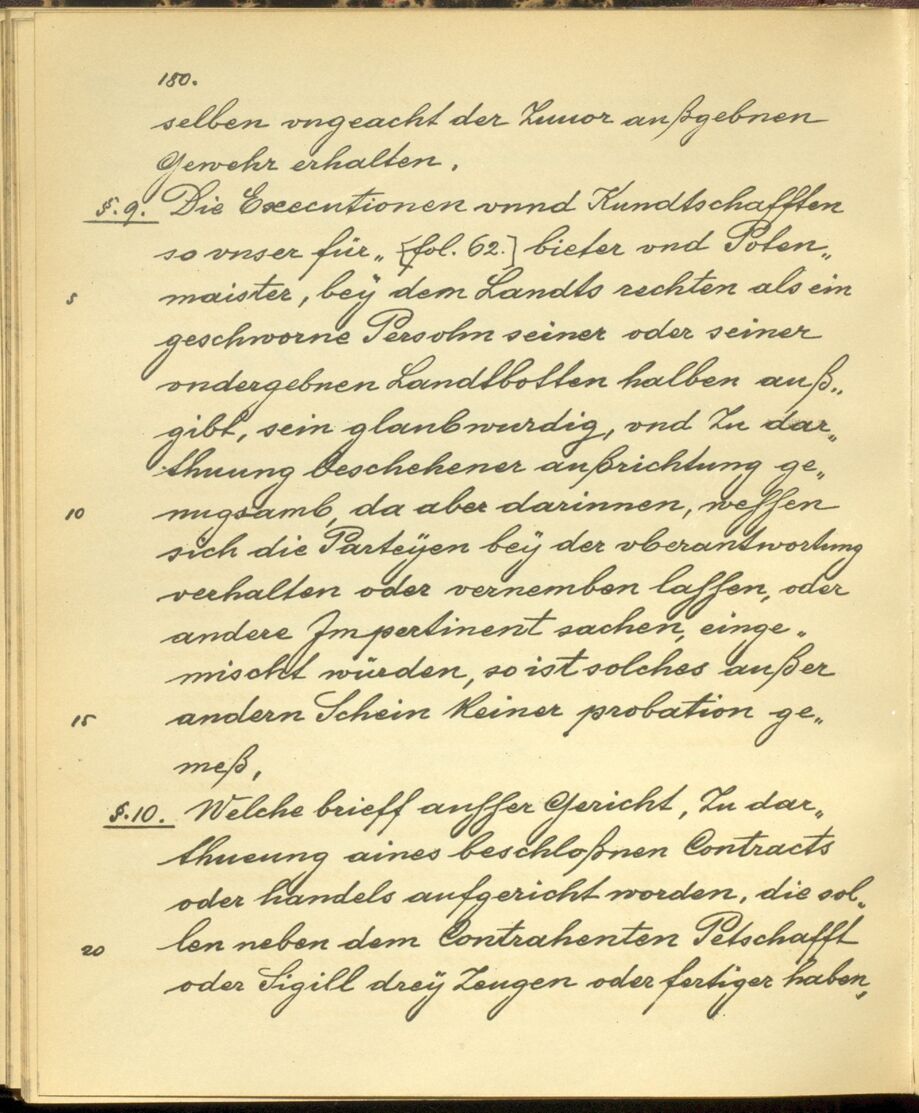 180.
selben vngeacht der Zuuor außgebnen
Gewehr erhalten.
§. 9. Die Executionen vnnd Kundtschafften
so vnser für„ [fol. 62.] bieter vnd Poten„
5 maister, bey dem Landts rechten als ein
geschworne Persohn seiner oder seiner
vndergebnen Landtbotten halben auß„
gibt, sein glaubwurdig, vnd Zu dar„
thuung beschehener außrichtung ge„
10 nugsamb, da aber darinnen, wessen
sich die Parteÿen beÿ der vberantwortung
verhalten oder vernemben lassen, oder
andere Impertinent sachen, einge„
mischt würden, so ist solches außer
15 andern Schein Keiner probation ge„
meß,
§. 10. Welche brieff ausser Gericht, Zu dar„
thueung aines beschloßnen Contracts
oder handels aufgericht worden, die sol„
20 len neben dem Contrahenten Petschafft
oder Sigill dreÿ Zeugen oder fertiger haben,